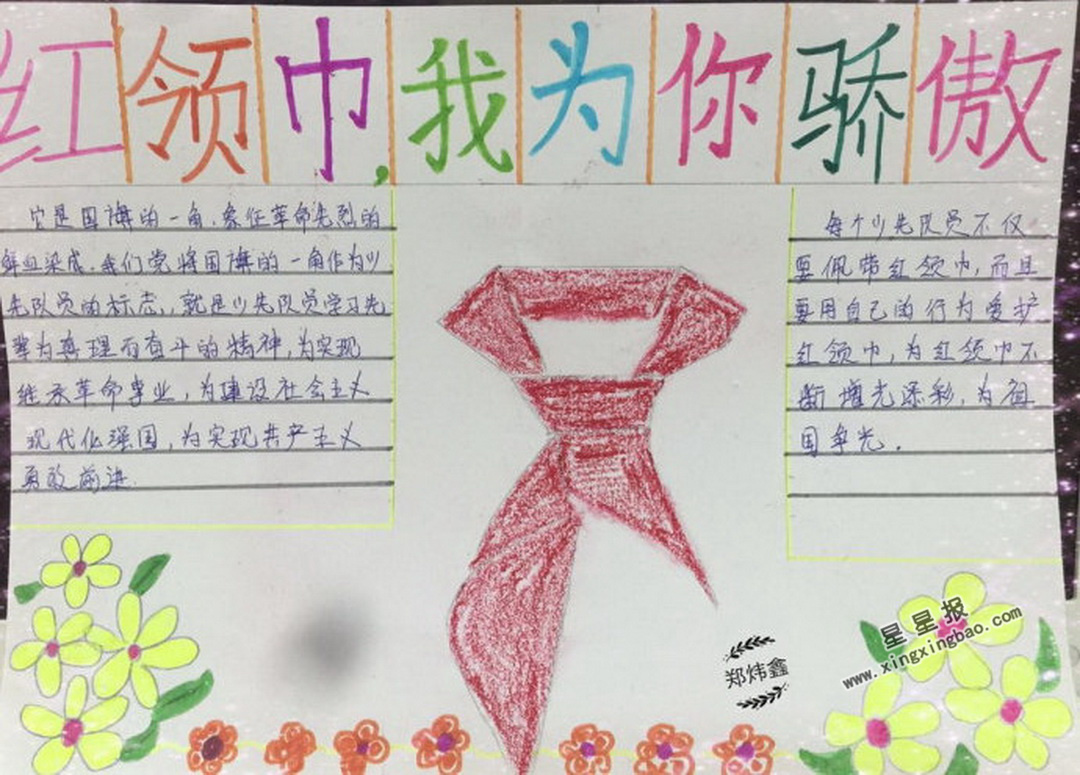 红领巾,我为你骄傲
它是国旗的一角,象征革命先烈的
鲜血染成.我们党将国旗的一角作为少
先队员的标志,就是少先队员学习先
辈为真理而奋斗的精神,为实现
继承革命事业,为建设社会主义
现代化强国,为实现共产主义
勇敢前进.
每个少先队员不仅
要佩带红领巾,而且
要用自己的行为爱护
红领巾,为红领巾不
断增光添彩,为祖
国争光.
郑炜鑫
星星报
www.xingxingbao.com